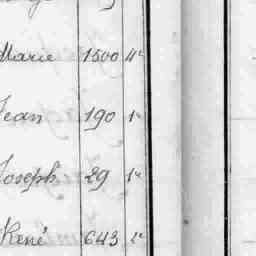 Marie 1500 4e
Jean 190 1e
Joseph 29 1e
René 643 2e